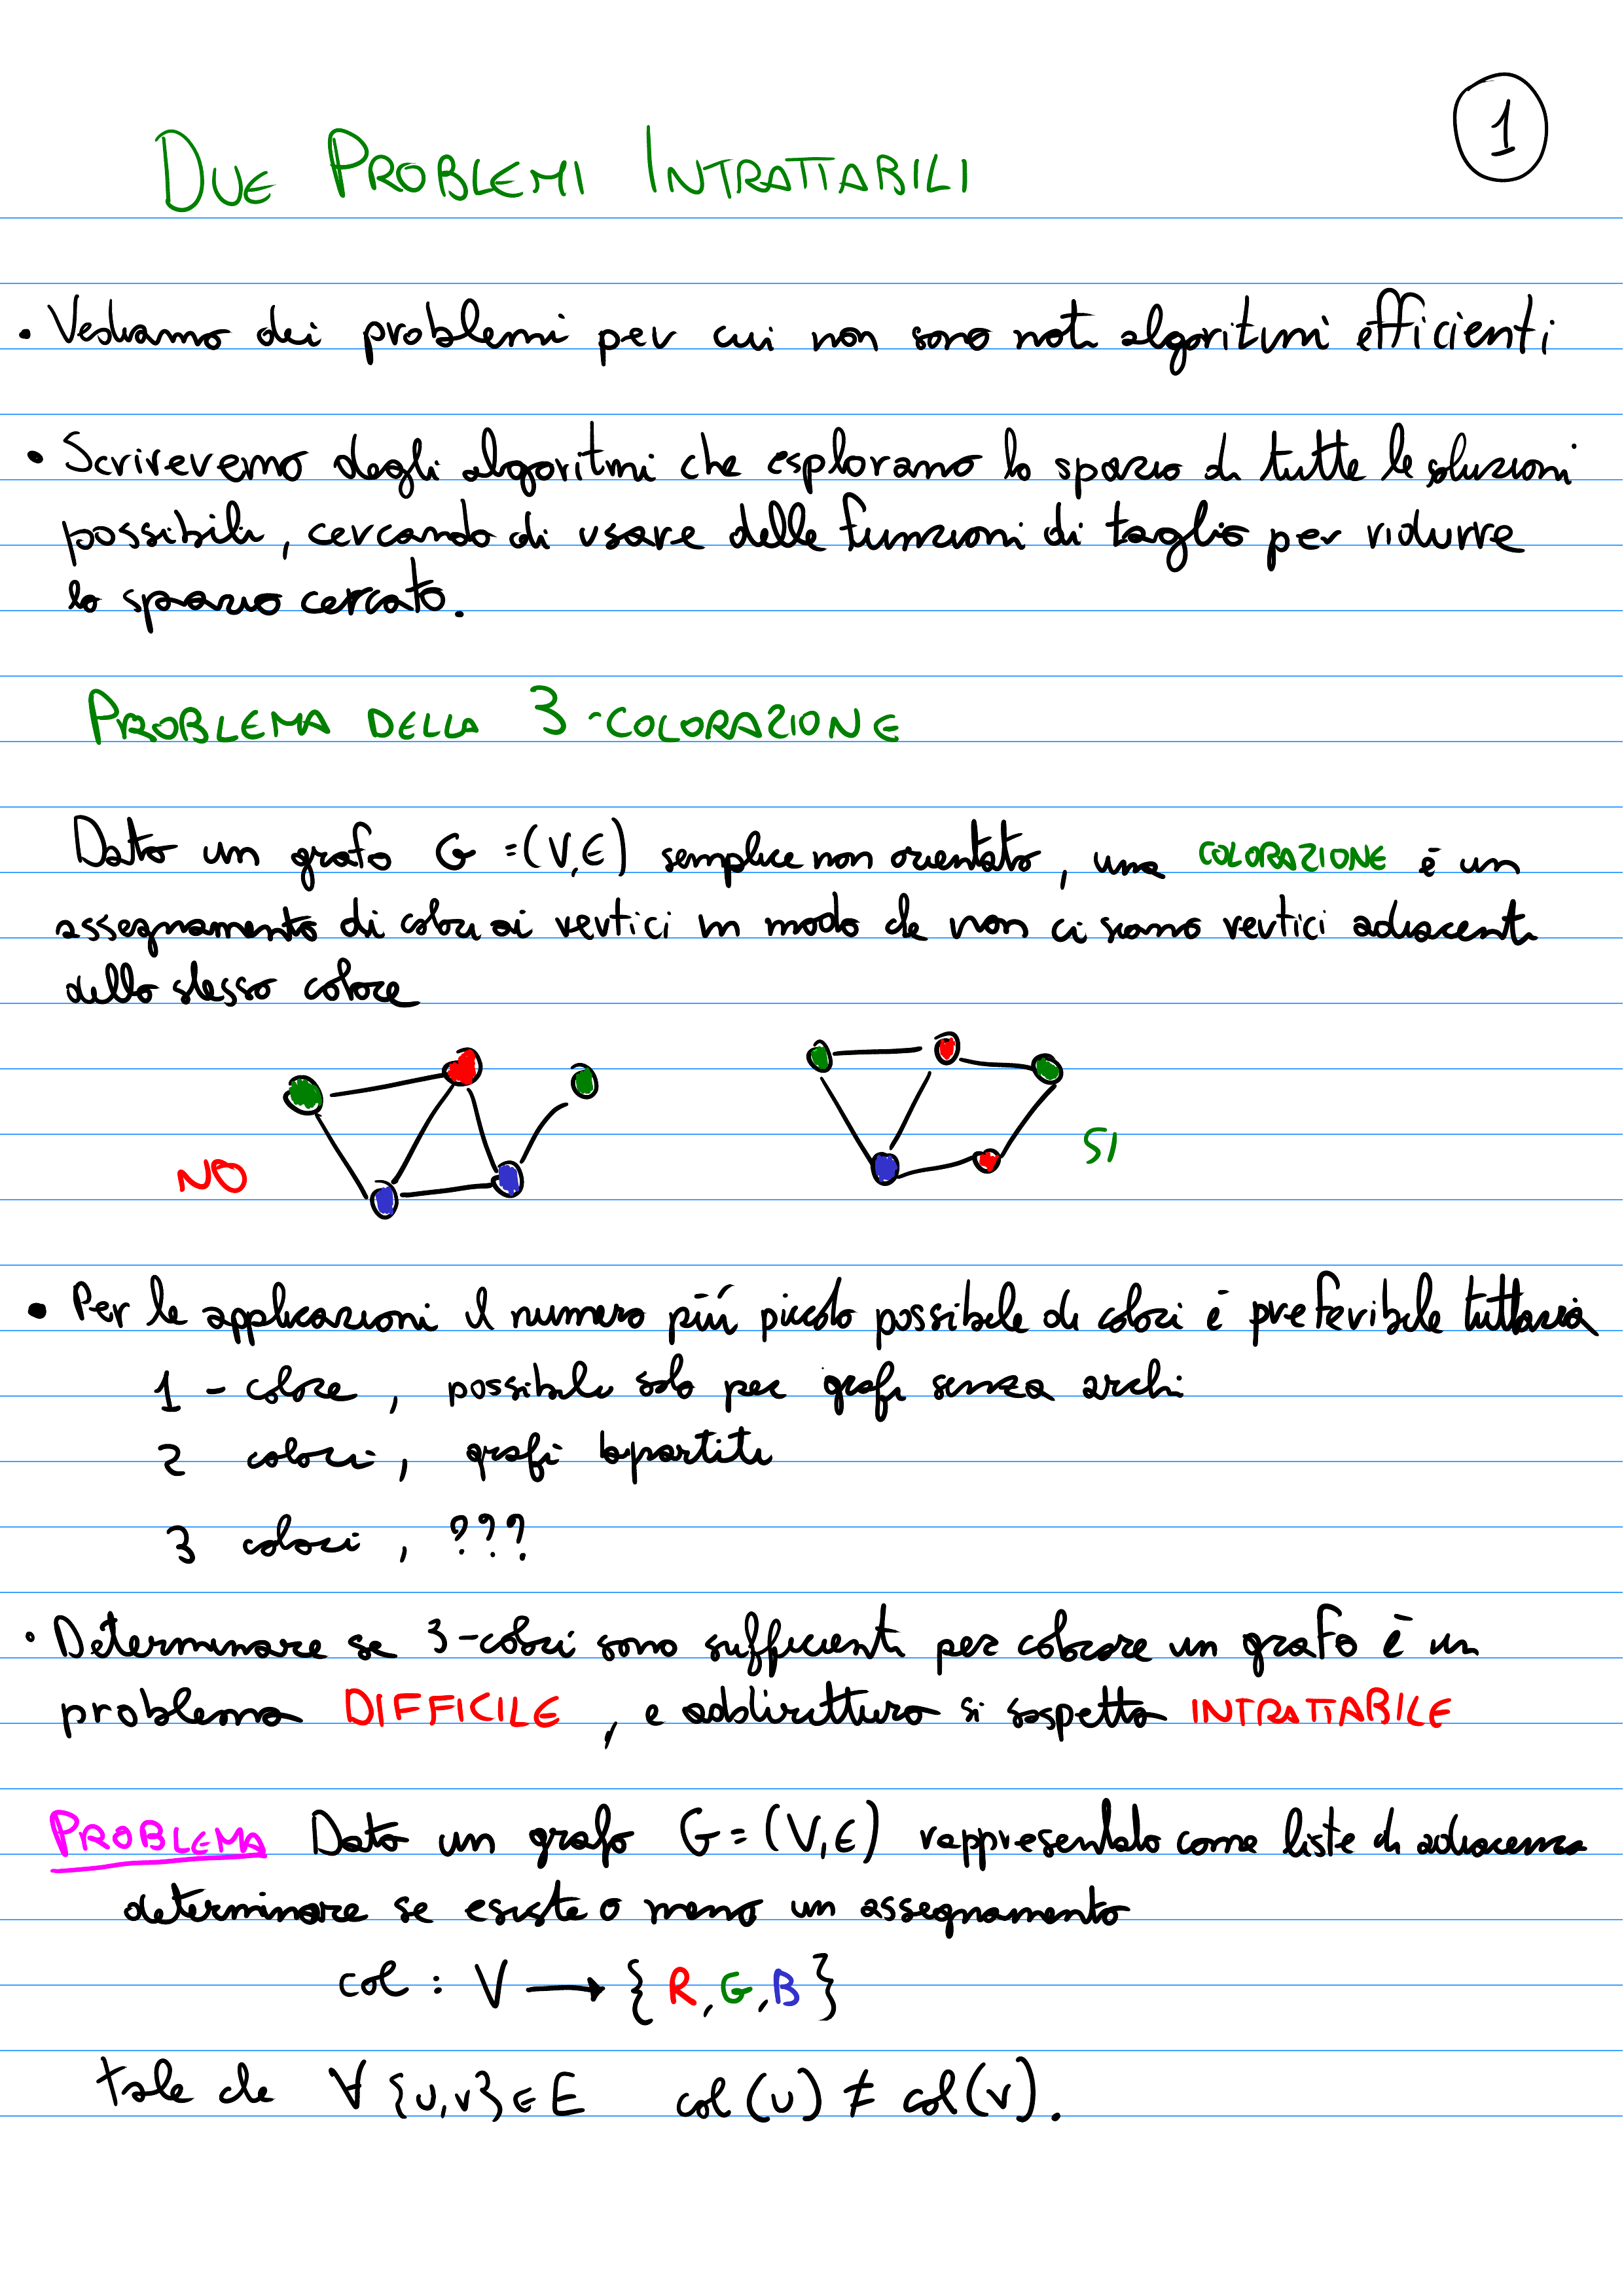 1
DUE PROBLEMI INTRATTABILI
• Vediamo dei problemi per cui non sono noti algoritmi efficienti
• Scriveremo degli algoritmi che esplorano lo spazio di tutte le soluzioni
possibili, cercando di usare delle funzioni di taglio per ridurre
lo spazio cercato.
PROBLEMA DELLA 3-COLORAZIONE
Dato un grafo G = (V,E) semplice non orientato, una COLORAZIONE è un
assegnamento di colori ai vertici in modo che non ci siano vertici adiacenti
dello stesso colore
NO
SI
• Per le applicazioni il numero più piccolo possibile di colori è preferibile tuttavia
1 - colore, possibile solo per grafi senza archi
2 colori, grafi bipartiti
3 colori, ???
• Determinare se 3-colori sono sufficienti per colorare un grafo è un
problema DIFFICILE, e addirittura si sospetta INTRATTABILE
PROBLEMA Dato un grafo G = (V,E) rappresentato come liste di adiacenza
determinare se esiste o meno un assegnamento
col : V → {R,G,B}
tale che ∀{u,v}∈E col(u) ≠ col(v).